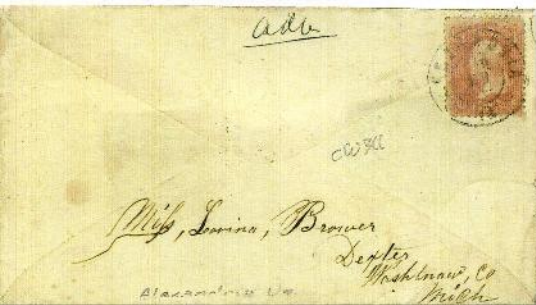 Adv
Miss, Lovina, Brower
Dexter
Washtnaw, Co
Mich
Alexandria Va.